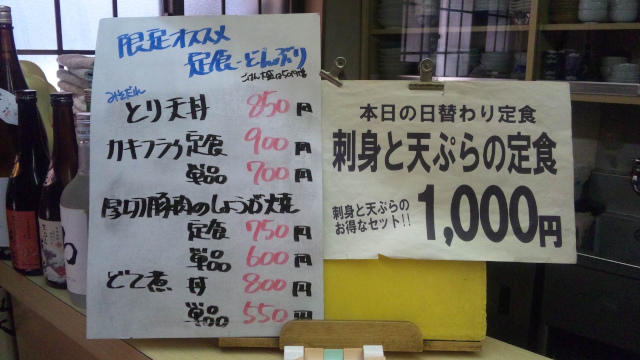 限定オススメ
定食・どんぶり
ごはん大盛は50円増
みそだれ
とり天丼 850円
カキフライ定食 900円
単品 700円
厚切豚肉のしょうが焼
定食 750円
単品 600円
どて煮 丼 800円
単品 550円
本日の日替わり定食
刺身と天ぷらの定食
刺身と天ぷらの
お得なセット!!
1,000円